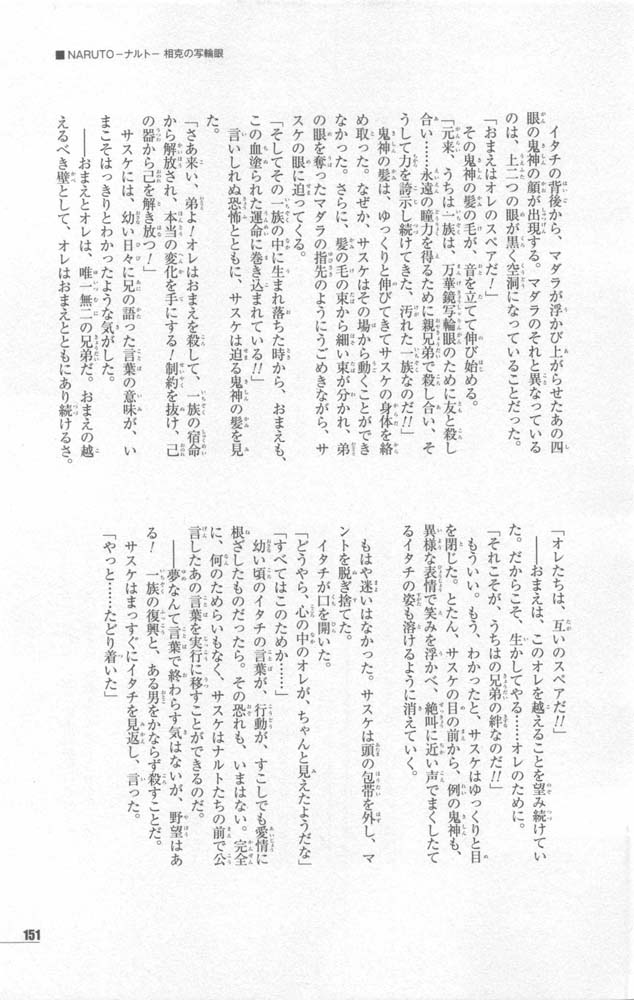 ■NARUTO―ナルト― 相克の写輪眼
イタチの背後から、マダラが浮かび上がらせたあの四
眼の鬼神の顔が出現する。マダラのそれと異なっている
のは、上二つの眼が黒く空洞になっていることだった。
「おまえはオレのスペアだ！」
その鬼神の髪の毛が、音を立てて伸び始める。
「元来、うちは一族は、万華鏡写輪眼のために友と殺し
合い……永遠の瞳力を得るために親兄弟で殺し合い、そ
うして力を誇示し続けてきた、汚れた一族なのだ!!」
鬼神の髪は、ゆっくりと伸びてきてサスケの身体を絡
め取った。なぜか、サスケはその場から動くことができ
なかった。さらに、髪の毛の束から細い束が分かれ、弟
の眼を奪ったマダラの指先のようにうごめきながら、サ
スケの眼に迫ってくる。
「そしてその一族の中に生まれ落ちた時から、おまえも、
この血塗られた運命に巻き込まれている!!」
言いしれぬ恐怖とともに、サスケは迫る鬼神の髪を見
た。
「さあ来い、弟よ！オレはおまえを殺して、一族の宿命
から解放され、本当の変化を手にする！制約を抜け、己
の器から己を解き放つ！」
サスケには、幼い日々に兄の語った言葉の意味が、い
まこそはっきりとわかったような気がした。
――おまえとオレは、唯一無二の兄弟だ。おまえの越
えるべき壁として、オレはおまえとともにあり続けるさ。
「オレたちは、互いのスペアだ!!」
――おまえは、このオレを越えることを望み続けてい
た。だからこそ、生かしてやる……オレのために。
「それこそが、うちはの兄弟の絆なのだ!!」
もういい。もう、わかったと、サスケはゆっくりと目
を閉じた。とたん、サスケの目の前から、例の鬼神も、
異様な表情で笑みを浮かべ、絶叫に近い声でまくしたて
るイタチの姿も溶けるように消えていく。
もはや迷いはなかった。サスケは頭の包帯を外し、マ
ントを脱ぎ捨てた。
イタチが口を開いた。
「どうやら、心の中のオレが、ちゃんと見えたようだな」
「すべてはこのためか……」
幼い頃のイタチの言葉が、行動が、すこしでも愛情に
根ざしたものだったら。その恐れも、いまはない。完全
に、何のためらいもなく、サスケはナルトたちの前で公
言したあの言葉を実行に移すことができるのだ。
――夢なんて言葉で終わらす気はないが、野望はあ
る！　一族の復興と、ある男をかならず殺すことだ。
サスケはまっすぐにイタチを見返し、言った。
「やっと……たどり着いた」
151